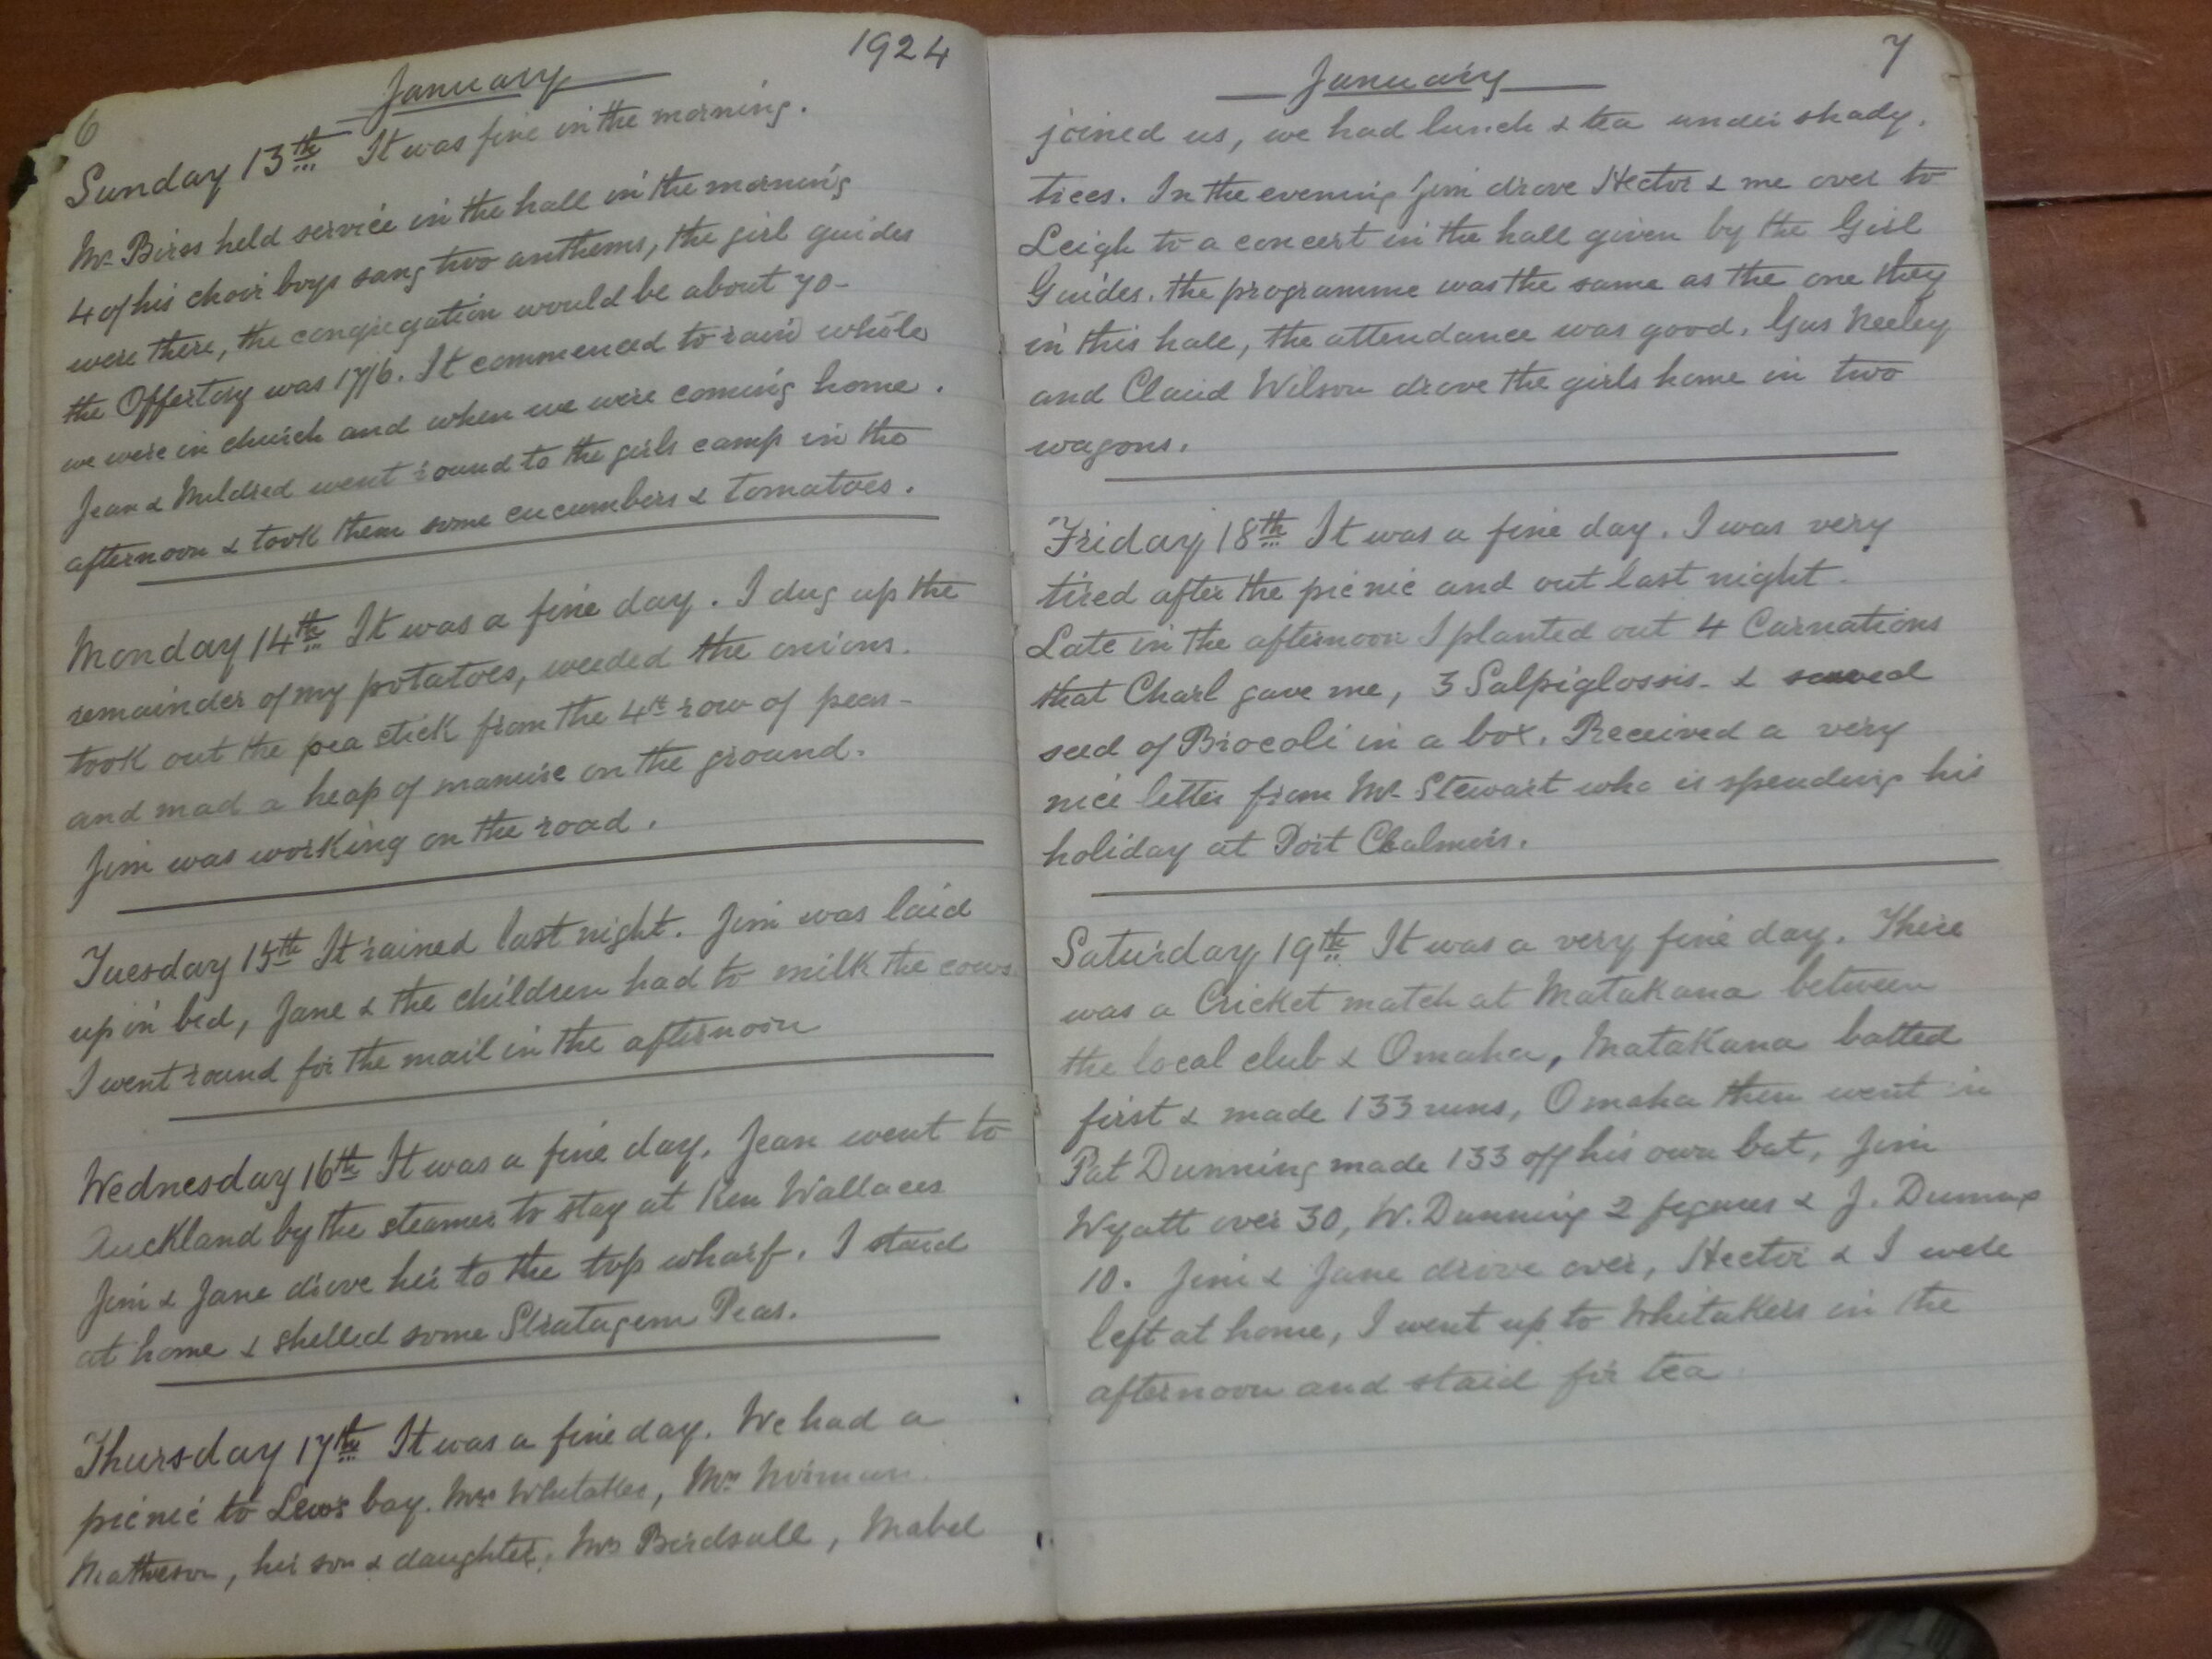 6
January
1924
Sunday 13th It was fine in the morning.
Mr Birss held service in the hall in the morning
4 of his choir boys sang two anthems, the girl guides
were there, the congregation would be about 70-
the Offertory was 17/6. It commenced to rain while
we were in church and when we were coming home.
Jean & Mildred went round to the girls camp in the
afternoon & took them some cucumbers & tomatoes.
Monday 14th It was a fine day. I dug up the
remainder of my potatoes, weeded the onions.
took out the pea stick from the 4th row of peas-
and mad a heap of manure on the ground.
Jim was working on the road.
Tuesday 15th It rained last night. Jim was laid
up in bed, Jane & the children had to milk the cows
I went round for the mail in the afternoon
Wednesday 16th It was a fine day. Jean went to
Auckland by the steamer to stay at Ken Wallaces
Jim & Jane drove her to the top wharf. I staid
at home & shelled some Stratagem Peas.
Thursday 17th It was a fine day. We had a
picnic to Lews bay. Mrs Whitaker, Mrs Norman
Matheson, her son & daughter, Mrs Birdsall, Mabel
January
7
joined us, we had lunch & tea under shady.
trees. In the evening Jim drove Hector & me over to
Leigh to a concert in the hall given by the Girl
Guides. the programme was the same as the one they
in this hall, the attendance was good. Gus Neeley
and Claud Wilson drove the girls home in two
wagons.
Friday 18th It was a fine day. I was very
tired after the picnic and out last night.
Late in the afternoon I planted out 4 Carnations
that Charl gave me, 3 Salpiglossis- & sowed
seed of Brocoli in a box. Received a very
nice letter from Mr Stewart who is spending his
holiday at Port Chalmers.
Saturday 19th It was a very fine day. There
was a Cricket match at Matakana between
the local club & Omaha, Matakana batted
first & made 133 runs, Omaha then went in
Pat Dunning made 133 off his own bat, Jim
Wyatt over 30, W. Dunning 2 figures & J. Dunning
10. Jim & Jane drove over, Hector & I were
left at home, I went up to Whitakers in the
afternoon and staid for tea